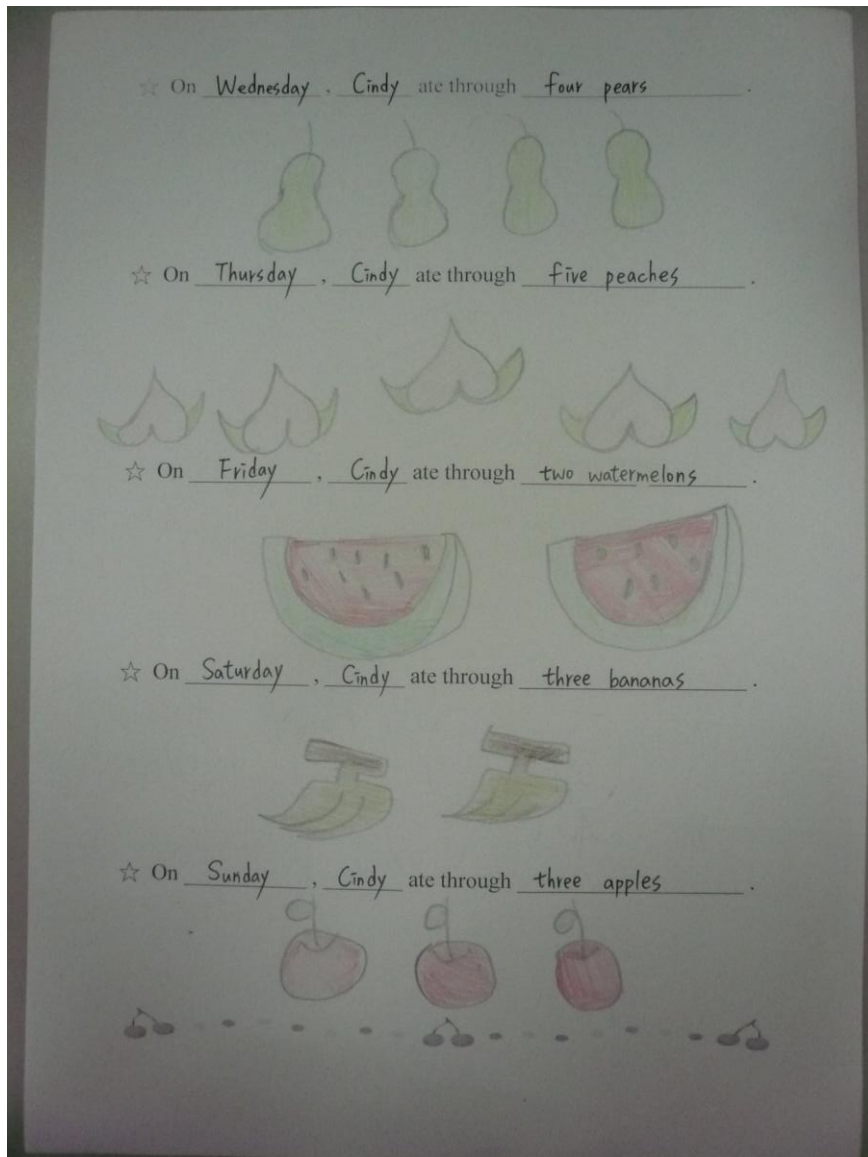 ☆ On Wednesday , Cindy ate through four pears .
☆ On Thursday , Cindy ate through five peaches .
☆ On Friday , Cindy ate through two watermelons .
☆ On Saturday , Cindy ate through three bananas .
☆ On Sunday , Cindy ate through three apples .